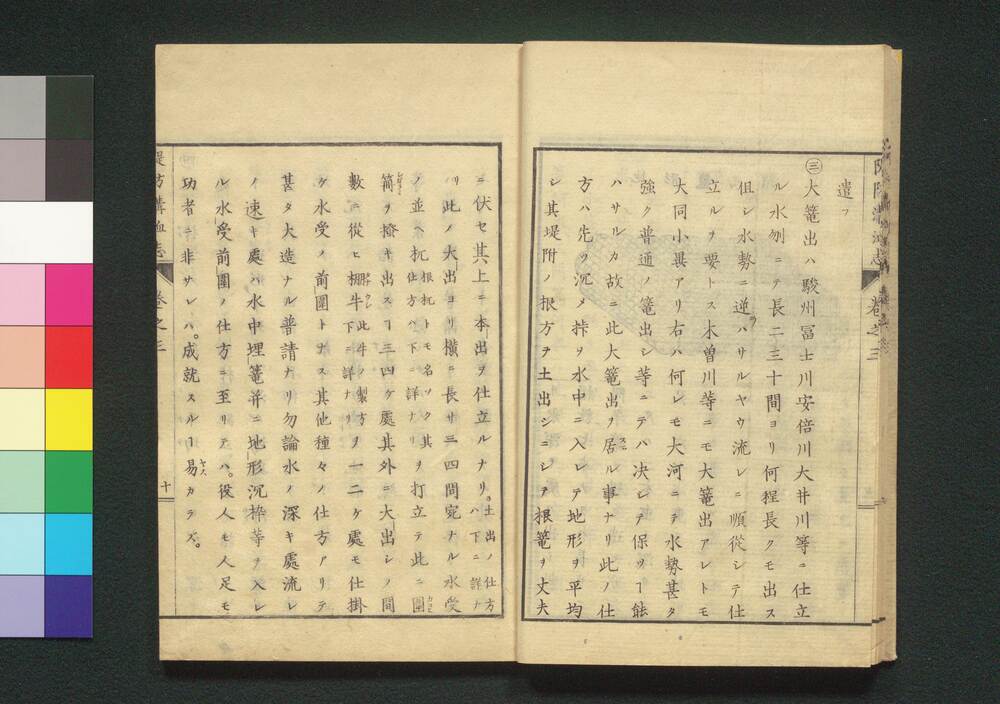 遣フ
㊂大篭出ハ駿州冨士川安倍川大井川等ニ仕立
ル水刎ニテ長二三十間ヨリ何程長クモ出ス
但シ水勢ニ逆ハサルヤウ流レニ順從シテ仕
立ルヲ要トス木曽川等ニモ大篭出アレトモ
大同小異アリ右ハ何レモ大河ニテ水勢甚タ
強ク普通ノ篭出シ等ニテハ决シテ保ツヿ能
ハサルカ故ニ此大篭出ヲ居ル事ナリ此ノ仕
方ハ先ツ沉メ枠ヲ水中ニ入レテ地形ヲ平均
シ其堤附ノ根方ヲ土出シニシテ根篭ヲ丈夫
ニ伏セ其上ニ本出ヲ仕立ルナリ。土出ノ仕方ハ下ニ詳ナ
リ此ノ大出ヨリ横ニ長サ三四間宛ナル水受
ノ並ヘ杭根杭トモ名ツク其仕方ハ下ニ詳ナリヲ打立テ此ニ圍
簡ヲ掻キ出スヿ三四ケ處其外ニ大出シノ間
數ニ從ヒ棚牛此牛ノ製方下ニ詳ナリヲ一二ケ處モ仕掛
ケ水受ノ前圍トナス其他種々ノ仕方アリテ
甚タ大造ナル普請ナリ勿論水ノ深キ處流レ
ノ速キ處ハ水中埋篭并ニ地形沉枠等ヲ入レ
ル水受前圍ノ仕方ニ至リテハ。役人モ人足モ
功者ニ非サレハ。成就スルヿ易カラズ。
堤防溝洫志
卷之三
十